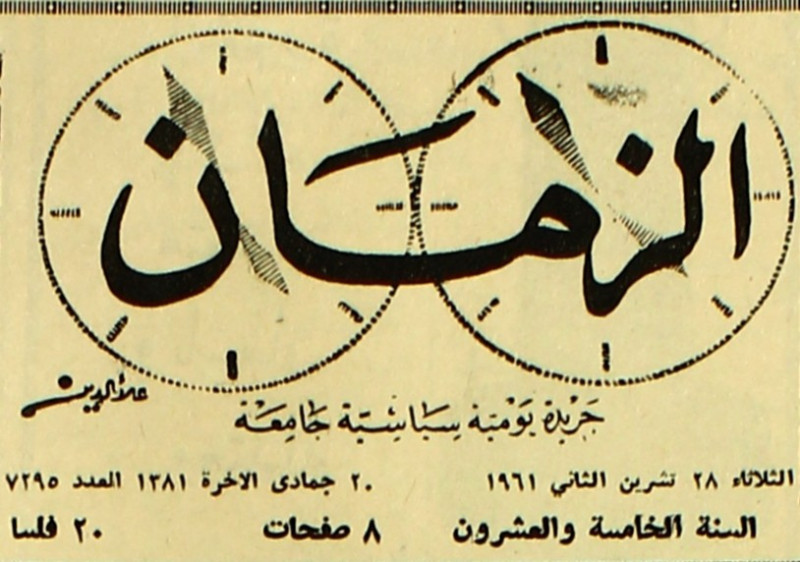 الزمان
علاالدين
جَرِيدة يَوْمية سِيَاسِيَّة جَامِعَة
الثلاثاء ٢٨ تشرين الثاني ١٩٦١ ٢٠ جمادى الاخرة ١٣٨١ العدد ٧٢٩٥
السنة الخامسة والعشرون ٨ صفحات ٢٠ فلسا